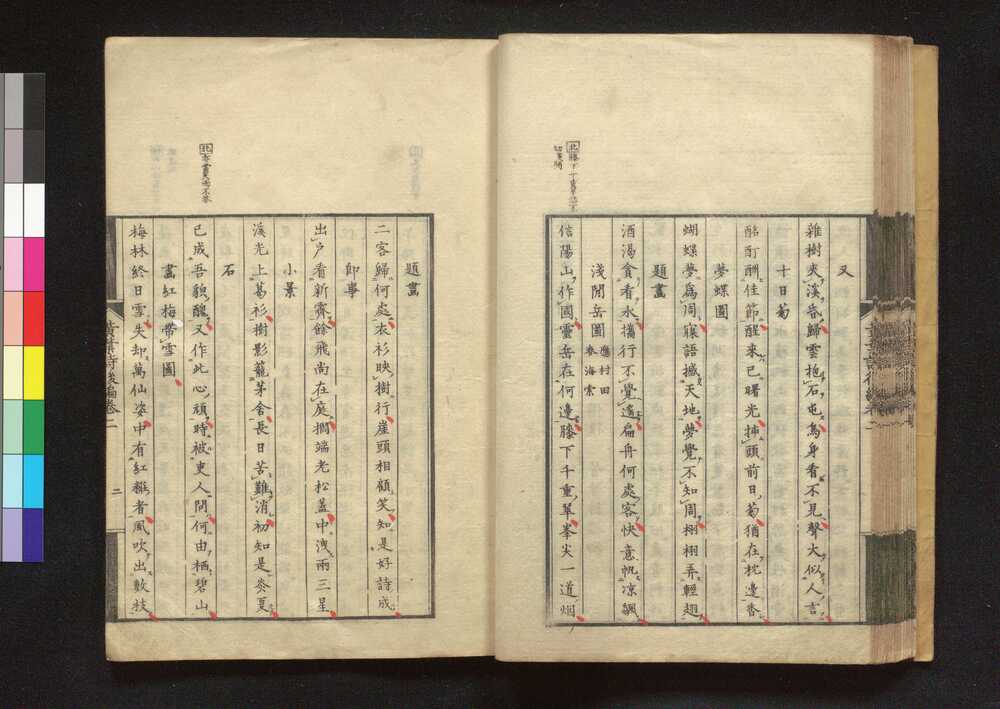 又
雜樹夾溪昏歸雲抱石屯鳥身看不見聲大似人言
十日菊
酩酊酬佳節醒來已曙光揷頭前日菊猶在枕邊香
夢蝶圖
蝴蝶夢爲周寐語撼天地夢覺不知周栩栩弄輕翅
題畫
酒渴貪看水攜行不覺遙扁舟何處客快意帆涼飆
淺間岳圖 應村田春海索
信陽山作國靈岳在何邊膝下千重翠峯尖一道烟
題畫
二客歸何處衣衫映樹行崖頭相顧笑知是好詩成
即事
出戶看新霽餘飛尚在庭擱端老松蓋中洩兩三星
小景
溪光上葛衫樹影籠茅舍長日苦難消初知是炎夏
石
已成吾貌醜又作此心頑時被吏人問何由栖碧山
畫紅梅帶雪圖
梅林終日雪失却萬仙姿中有紅糚者風吹出數枝
黃葉詩後編卷二
二